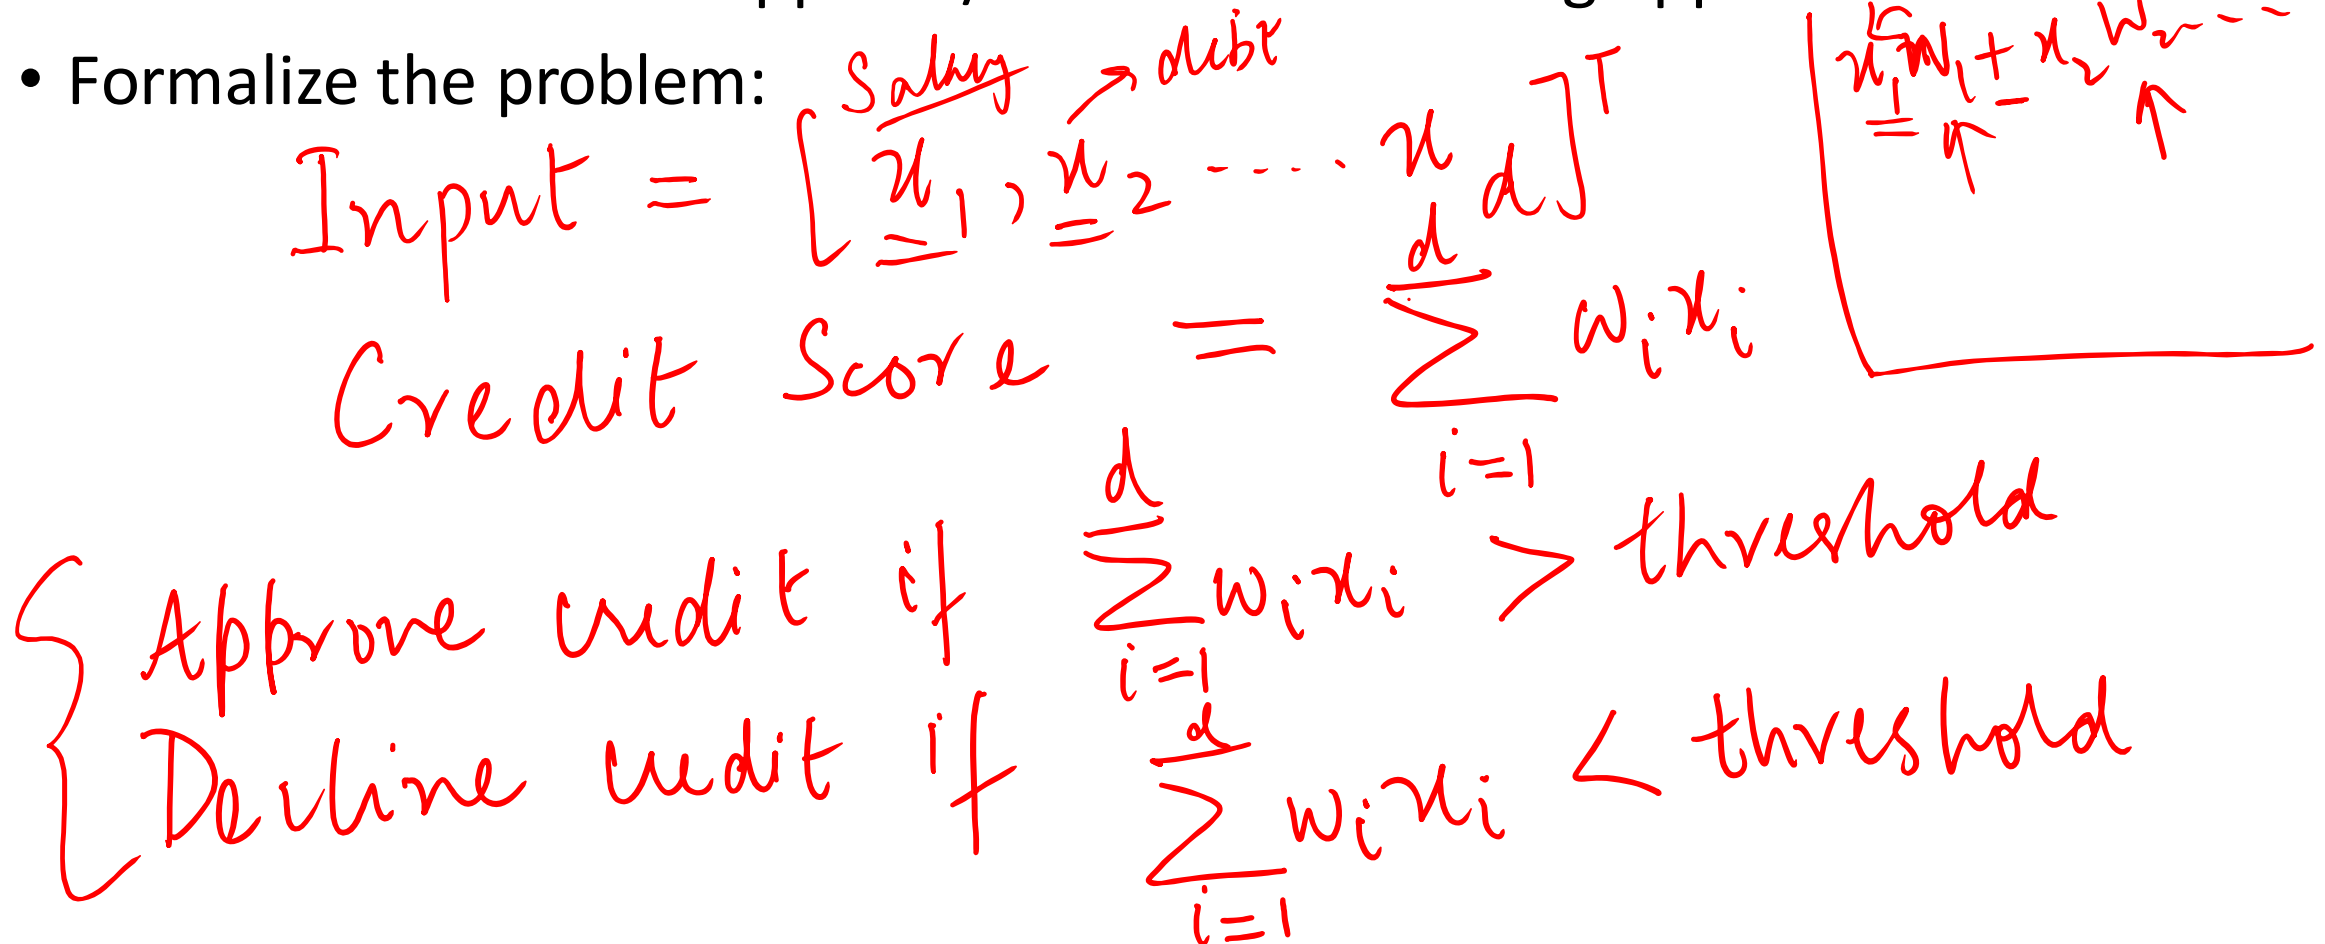 • Formalize the problem:
Salary → debt
Input = [x₁, x₂ ---- x_d]ᵀ
x₁w₁ + x₂w₂ ---
Credit Score = ∑_{i=1}^{d} wᵢxᵢ
Approve credit if ∑_{i=1}^{d} wᵢxᵢ > threshold
Decline credit if ∑_{i=1}^{d} wᵢxᵢ < threshold